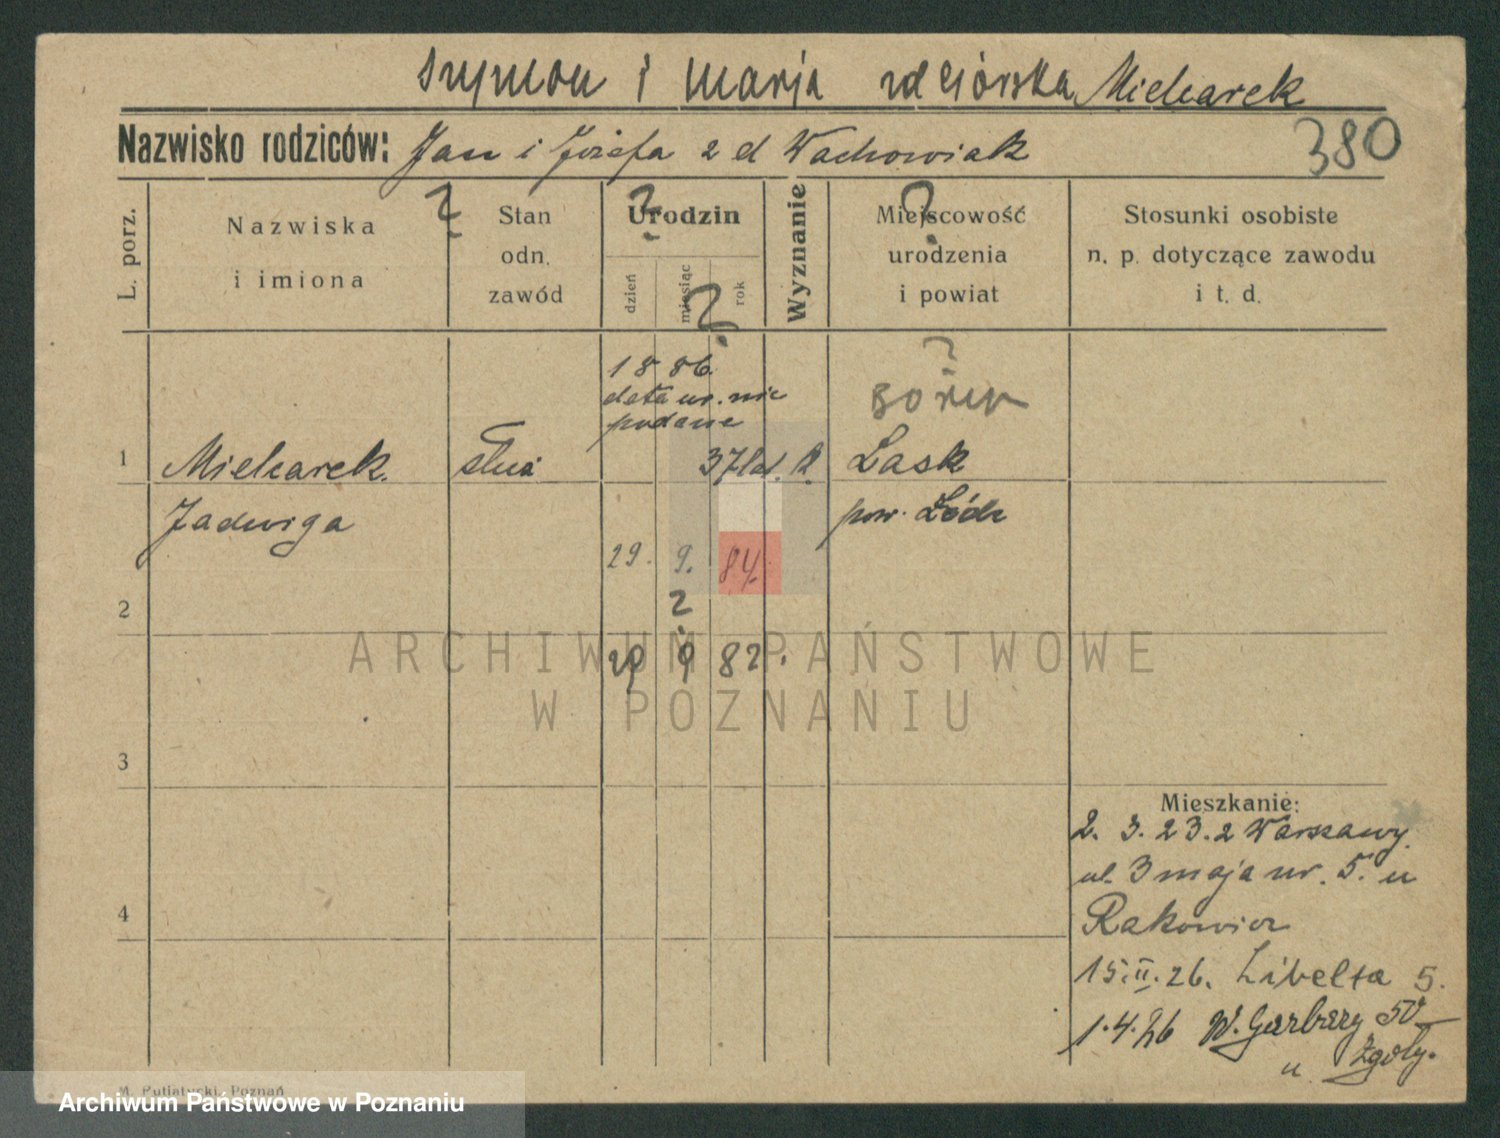 Szymon i Marja zd Ciórska Mielcarek
Nazwisko rodziców: Jan i Józefa z d Wachowiak
380
L. porz.
Nazwiska
i imiona
?
Stan
odn.
zawód
Urodzin
?
dzień
miesiąc
rok
?
Wyznanie
Miejscowość
urodzenia
i powiat
?
Stosunki osobiste
n. p. dotyczące zawodu
i t. d.
1886.
data ur. nie
podane
?
1 Mielcarek służ 37 lat. k. Lask
Jadwiga pow. Łódz
29. 9. 84.
2
?
29 9 82.
ARCHIWUM PAŃSTWOWE
W POZNANIU
3
Mieszkanie:
2. 3. 23. z Warszawy
ul. 3 maja nr. 5. u
4 Rakowicz
15.II.26. Libelta 5.
1.4.26 W. Garbary 50
u Zgoły.
M. Putiatycki, Poznań
Archiwum Państwowe w Poznaniu